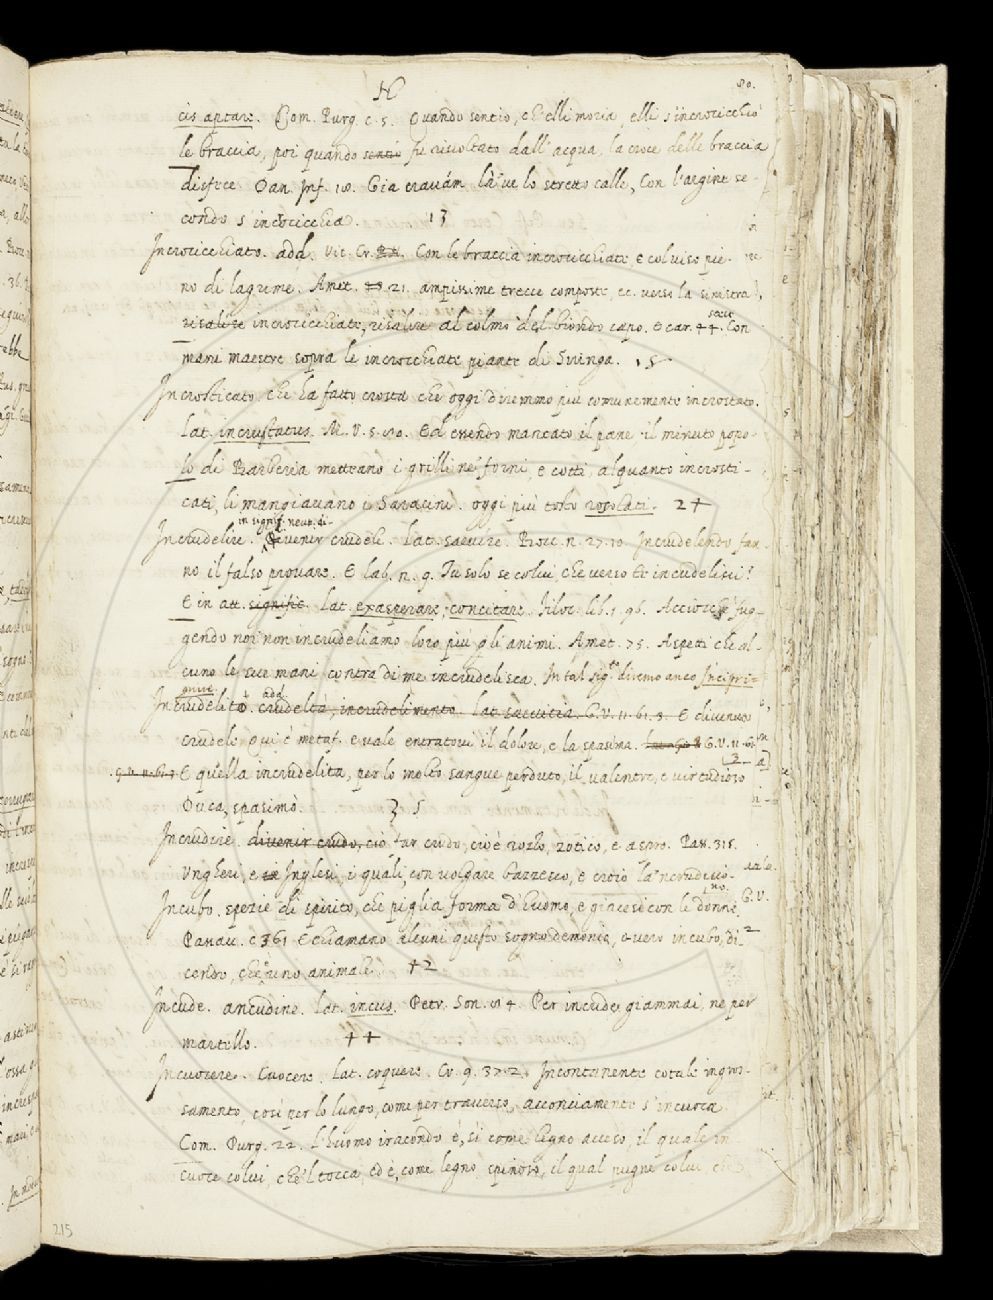 80.
cis aptare. Com. Purg. c. 5. Quando sentio, ch'elli moria, elli s'incrocicchiò
le braccia, poi quando sentio fu rivoltato dall'acqua, la croce delle braccia
disfece. Dan. Inf. 18. Gia eravám là 've lo stretto calle, Con l'argine se-
condo s'incrocicchia. 13
Incrocicchiato. add. Vit. Cr. Con le braccia incrocicchiate, e col viso pie-
no di lagrime. Amet. 21. ampissime trecce composte, ec. verso la sinistra
risalire incrocicchiate, risalire al colmo del biondo capo. E car. 44. Con
mani maestre sopra le incrocchiate piante di Siringa. 15
Incrosticato. che ha fatto crosta che oggi diremmo più comunemente incrostato.
Lat. incrustatus. M. V. 5. 80. Ed essendo mancato il pane il minuto popo-
lo di Barberia metteano i grilli ne' forni, e cotti, alquanto incrosti-
cati, li mangiavano i Saracini. oggi più tosto rosolati. 24
in signif. neut. di-
Incrudelire. Divenir crudele. Lat. saevire. Bocc. n. 27. 10. Incrudelendo fan-
no il falso provare. E lab. n. 9. Tu solo se colui, che verso te incrudelisci?
E in att. signific. Lat. exasperare, concitare. Filoc. lib. 1. 96. Acciocchè fug-
gendo noi non incrudeliamo loro più gli animi. Amet. 75. Aspetti che al-
cuno le sue mani contra di me incrudelisca. In tal sig.to diremo anco Incipri-
gnire. add.
Incrudelito. crudeltà, incrudelimento. Lat. saevitia. G. V. 11. 61. 3. E divenuto
crudele. Qui è metaf. e vale entratovi il dolore, e la spasima. G. V. 11. 61.
G. V. 11. 61. 3. E quella incrudelita, per lo molto sangue perduto, il valentre, e virtudioso
Duca, spasimò. 3 5
Incrudire. divenir crudo, ciò far crudo, cioè rozzo, zotico, e aspro. Pass. 315.
Vngheri, e Inglesi, i quali, con volgare bazzesco, e croio la 'ncrudisco-
no.
Incubo. spezie di spirito, che piglia forma d'huomo, e giacesi con le donne,
Passav. c 361 E chiamano alcuni questo sogno demonio, o vero incubo, di-
cendo, che è uno animale 42
Incude. ancudine. Lat. incus. Petr. Son. 84. Per incude giammai, nè per
martello. 44
Incuocere. Cuocere. Lat. coquere. Cr. 9. 37. 2. Incontanente cotale ingros-
samento, così per lo lungo, come per traverso, acconciamente s'incuoca.
Com. Purg. 22. L'huomo iracondo è, sì come legno acceso, il quale in
cuoce colui, che 'l tocca, ed è, come legno spinoso, il qual pugne colui, che
215